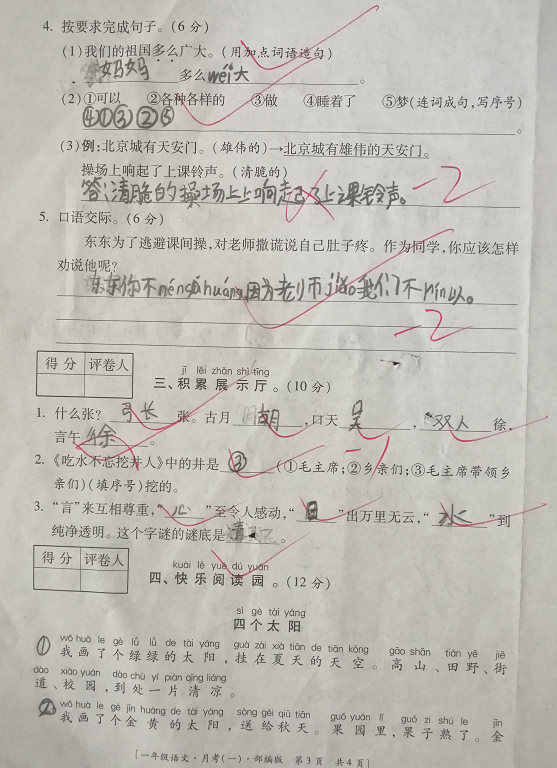 4. 按要求完成句子。(6 分)
(1)我们的祖国多么广大。(用加点词语造句)
妈妈 多么wěi大 。
(2)①可以 ②各种各样的 ③做 ④睡着了 ⑤梦(连词成句,写序号)
④①③②⑤ 。
(3)例:北京城有天安门。(雄伟的)→北京城有雄伟的天安门。
操场上响起了上课铃声。(清脆的)
答:清脆的操场上响起了上课铃声。 -2
5. 口语交际。(6 分)
东东为了逃避课间操,对老师撒谎说自己肚子疼。作为同学,你应该怎样
劝说他呢?
东东你不néng huáng,因为老师jiāo我们不 以。
-2
得分 评卷人
jī lěi zhǎn shì tīng
三、积累展示厅。(10 分)
1. 什么张? 弓长 张。古月 胡 ,口天 吴 , 双人 徐,
言午 徐 。 -1
2.《吃水不忘挖井人》中的井是 ③ (①毛主席;②乡亲们;③毛主席带领乡
亲们)(填序号)挖的。
3. “言”来互相尊重,“ 心 ”至令人感动,“ 日 ”出万里无云,“ 水 ”到
纯净透明。这个字谜的谜底是 青 。
得分 评卷人
kuài lè yuè dú yuán
四、快乐阅读园。(12 分)
sì gè tài yáng
四个太阳
wǒ huà le gè lǜ lǜ de tài yáng guà zài xià tiān de tiān kōng gāo shān tián yě jiē
① 我画了个绿绿的太阳,挂在夏天的天空。高山、田野、街
dào xiào yuán dào chù yí piàn qīng liáng
道、校园,到处一片清凉。
wǒ huà le gè jīn huáng de tài yáng sòng gěi qiū tiān guǒ yuán lǐ guǒ zi shú le jīn
② 我画了个金黄的太阳,送给秋天。果园里,果子熟了。金
[一年级语文·月考(一)·部编版 第 3 页 共 4 页]